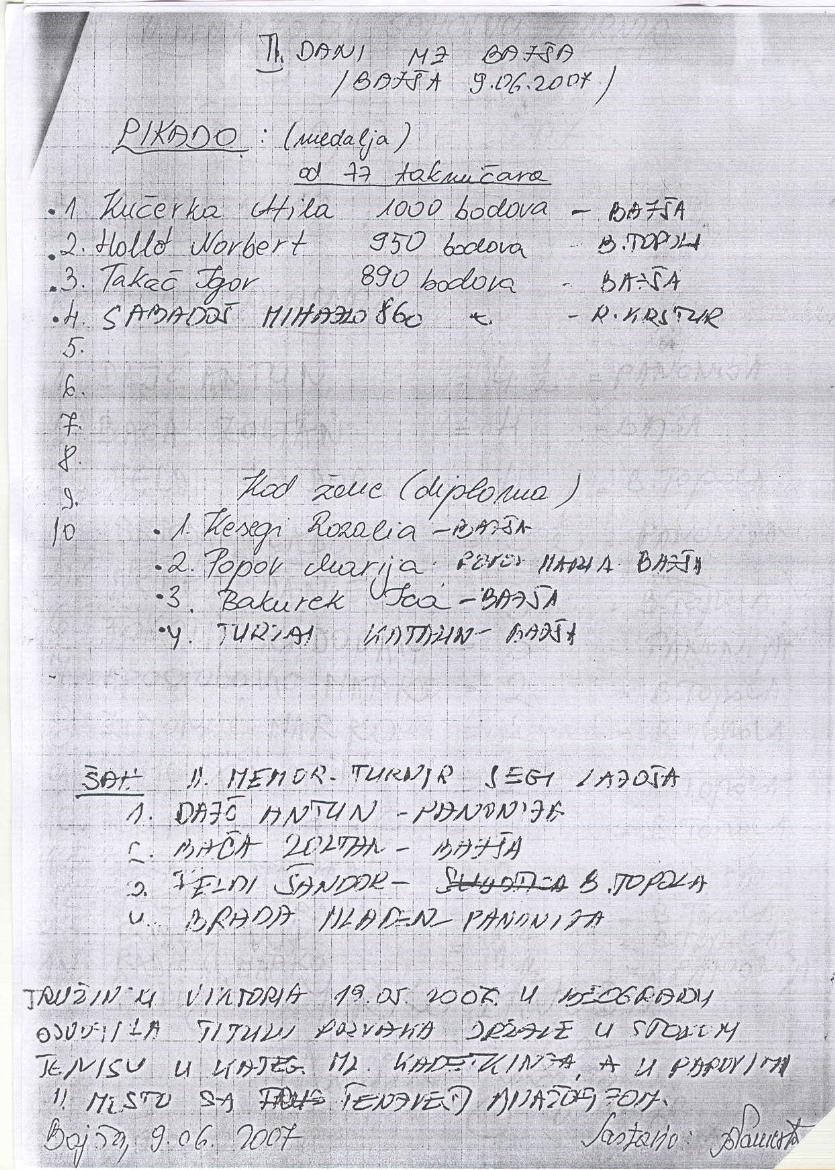 II. DANI MZ BAJŠA
/BAJŠA 9.06.2007/
PIKADO: (medalja)
od 77 takmičara
1. Kučerka Atila 1000 bodova - BAJŠA
2. Holló Norbert 950 bodova - B.TOPOLA
3. Takač Igor 890 bodova - BAJŠA
4. SABADOŠ MIHAJLO 860 - R. KRSTUR
5.
6.
7.
8.
9.
10
Kod žene (diploma)
1. Kesegi Rozalia - BAJŠA
2. Popov Marija BAJŠA
3. Bakurek - BAJŠA
4. KATALIN - BAJŠA
ŠAH: II. MEMOR. TURNIR ŠEGI LAJOŠA
1. DAJČ ANTUN - PANONIJA
2. BAČA ZOLTAN - BAJŠA
3. ŠANDOR - B.TOPOLA
4. BRADA MLADEN - PANONIJA
VIKTORIA 19.05.2007. U BEOGRADU
OSVOJILA TITULU PRVAKA DRŽAVE U STONOM
TENISU U KATEG. ML. KADETKINJA, A U PAROVIMA
II MESTO SA
Bajša, 9.06.2007 Sastavio: